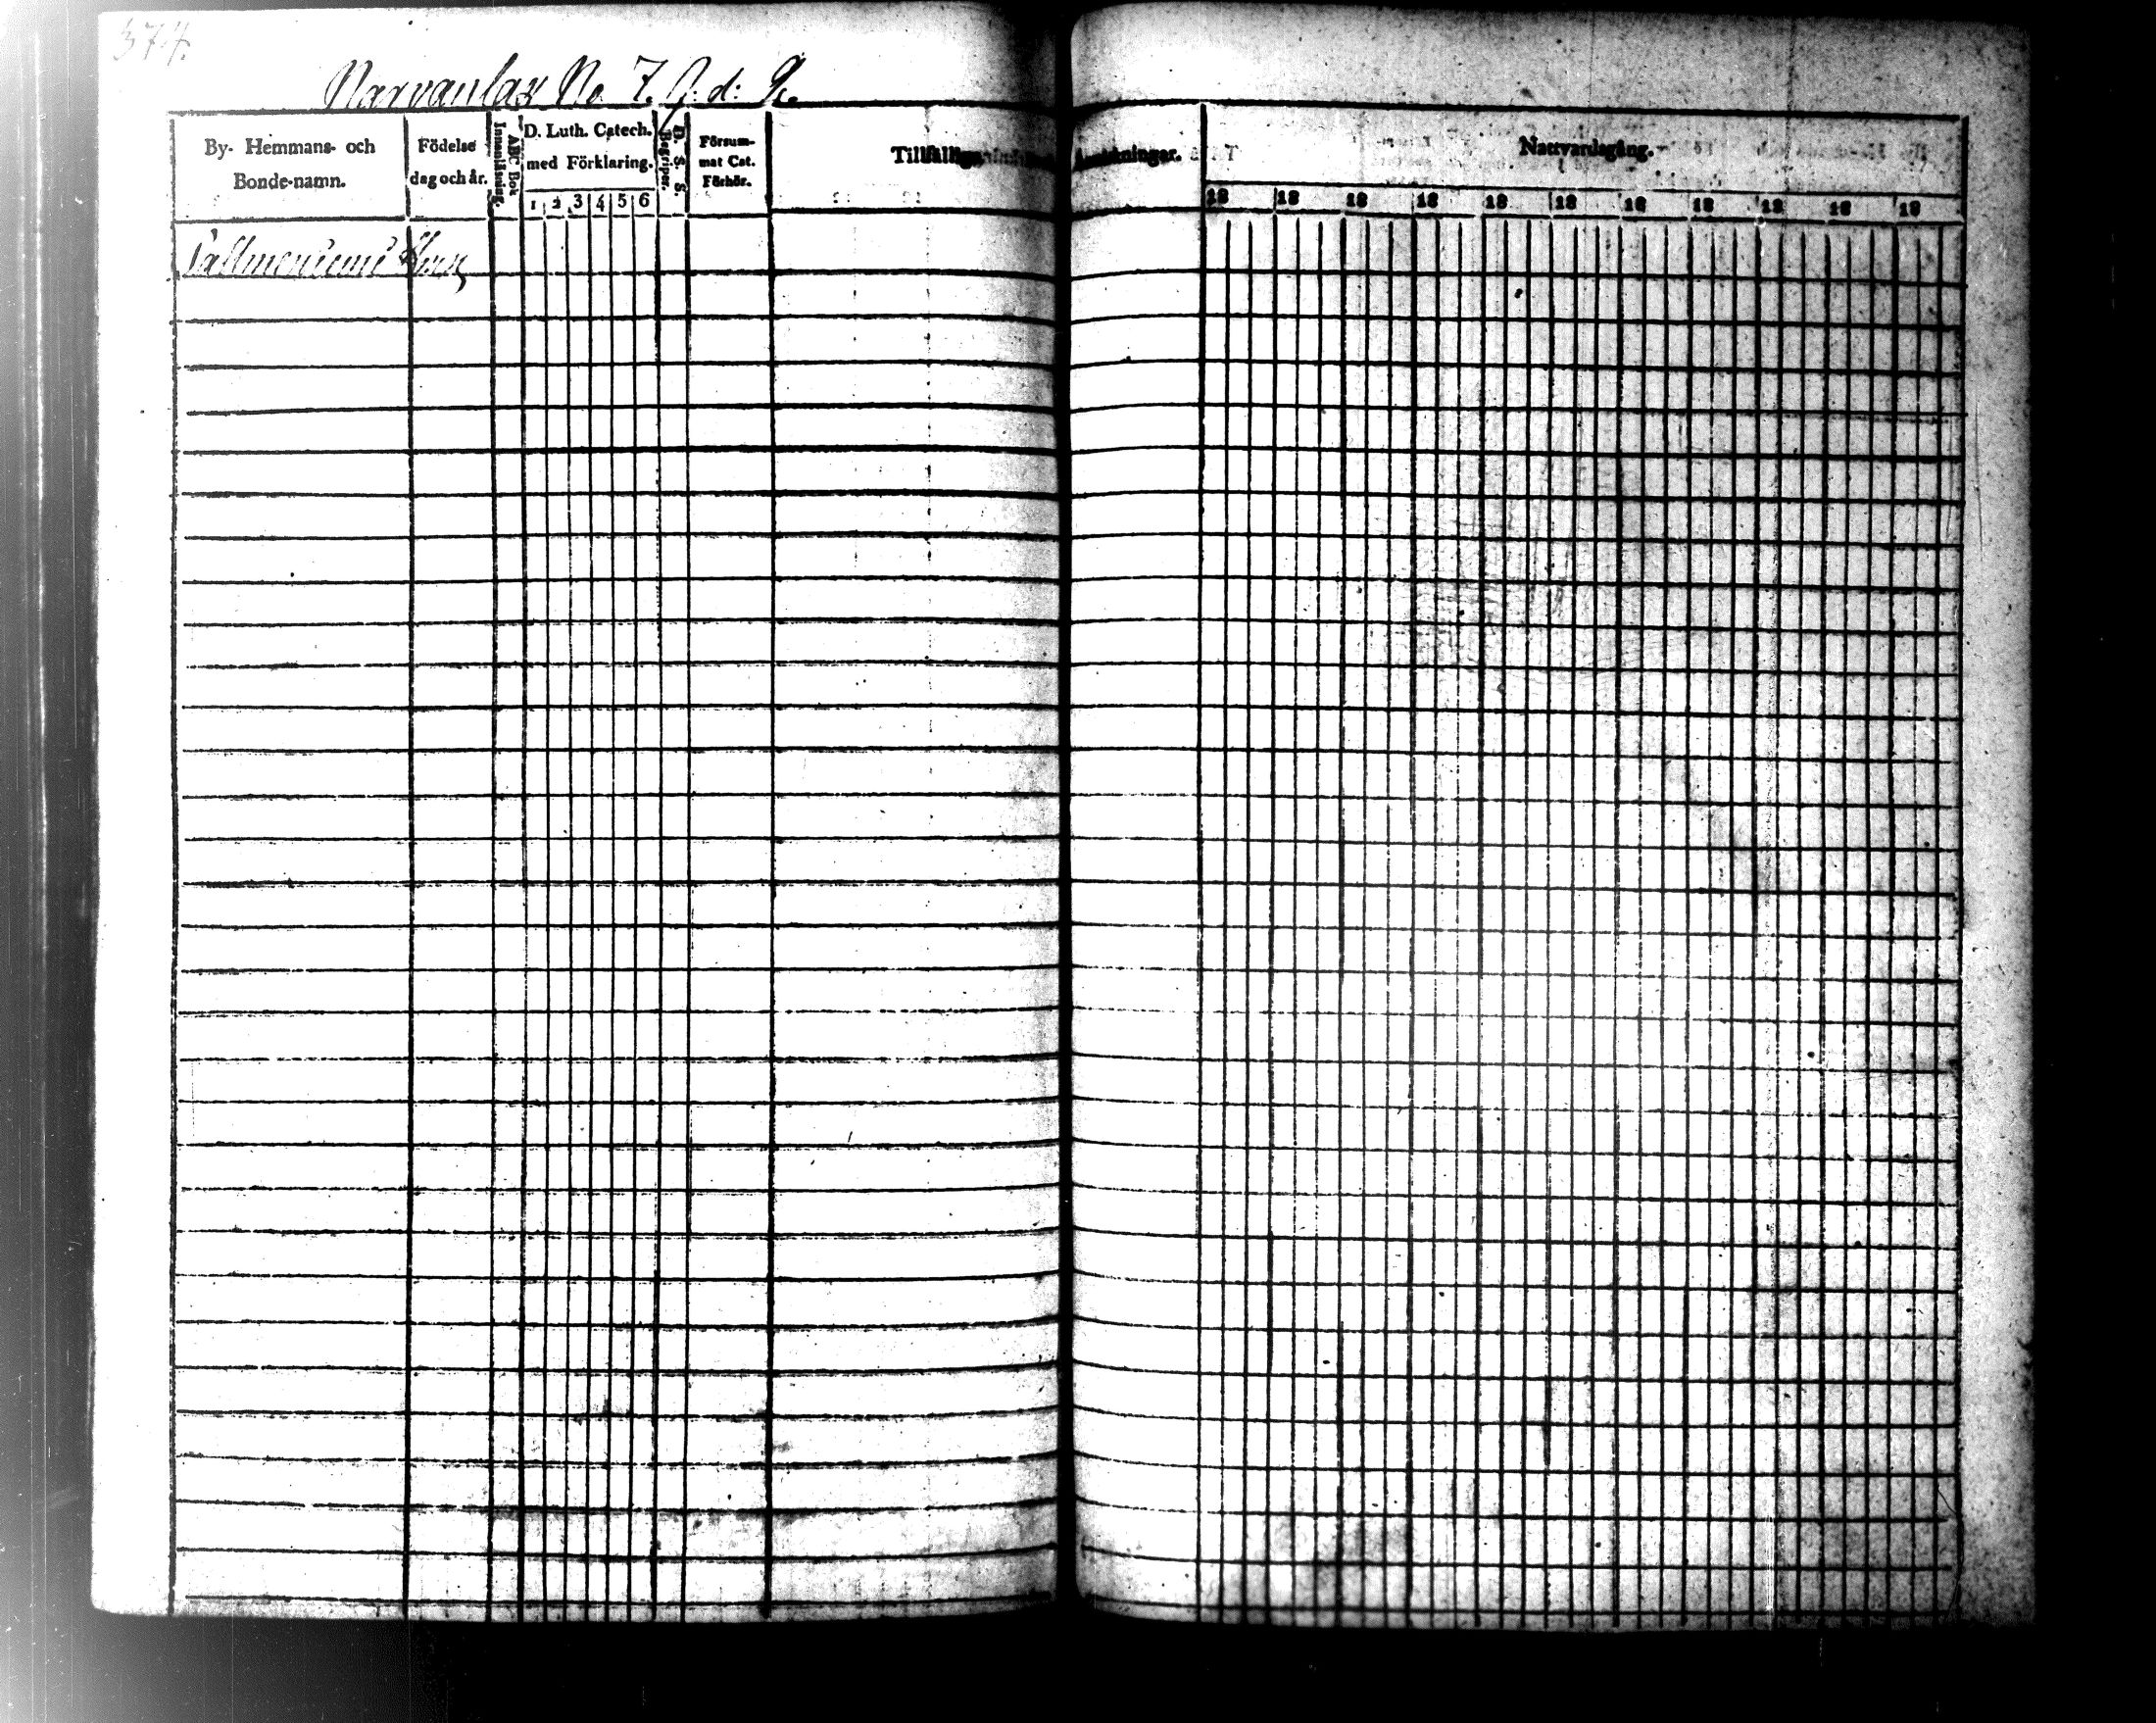 374.
Narvanlax No 7.
By- Hemmans- och Bonde-namn.
Födelse dag och år.
ABC Bok Innanläsning.
D. Luth. Catech. med Förklaring.
1 2 3 4 5 6
D. S. S. Begriper.
Försum- mat Cat. Förhör.
Tillfällige Anmärkningar.
Nattvardsgång.
18 18 18 18 18 18 18 18 18 18 18